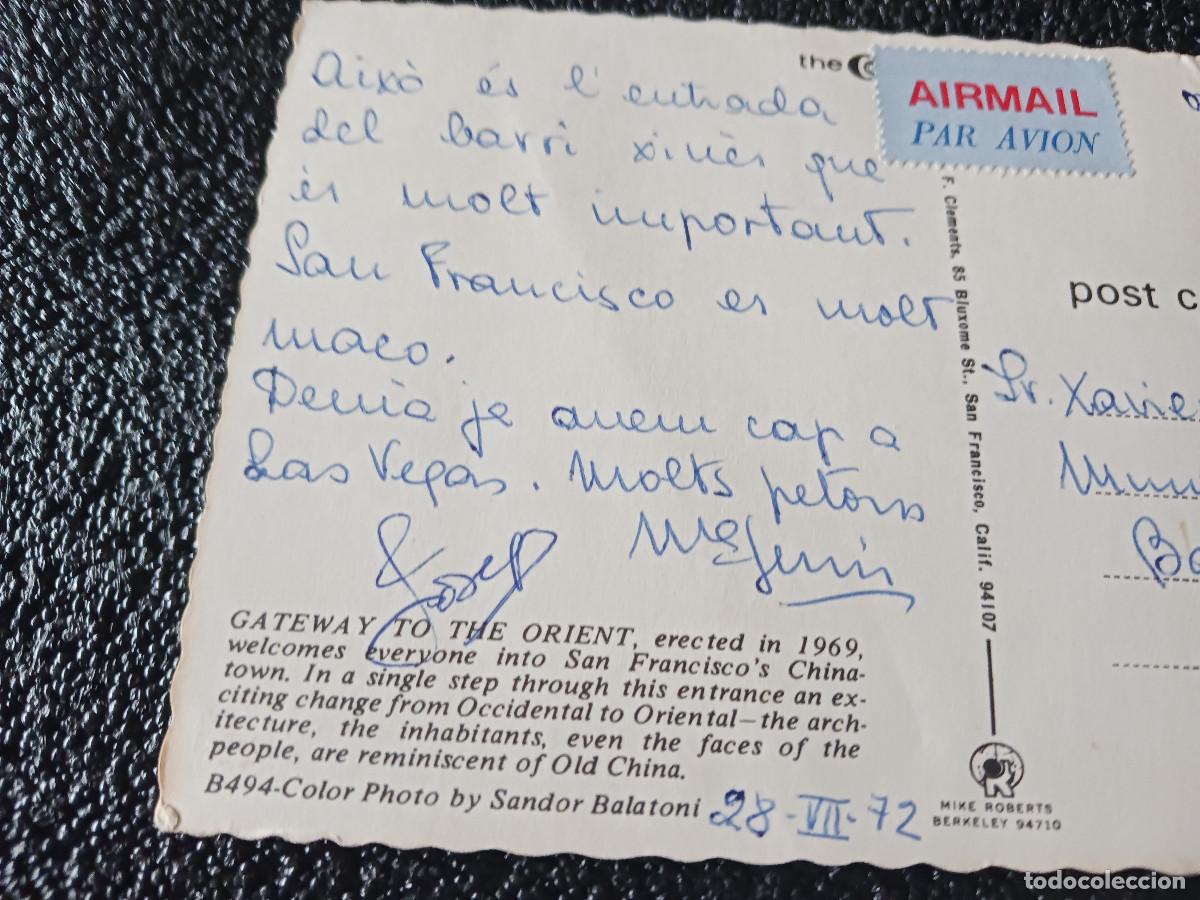 Això és l'entrada
del barri xinès que
és molt important.
San Francisco es molt
maco.
Demà ja anem cap a
Las Vegas. Molts petons
Josep
the
AIRMAIL
PAR AVION
F. Clements, 85 Bluxome St., San Francisco, Calif. 94107
post c
Sr. Xavie
GATEWAY TO THE ORIENT, erected in 1969,
welcomes everyone into San Francisco's China-
town. In a single step through this entrance an ex-
citing change from Occidental to Oriental—the arch-
itecture, the inhabitants, even the faces of the
people, are reminiscent of Old China.
B494-Color Photo by Sandor Balatoni
28-VII-72
MIKE ROBERTS
BERKELEY 94710
todocoleccion